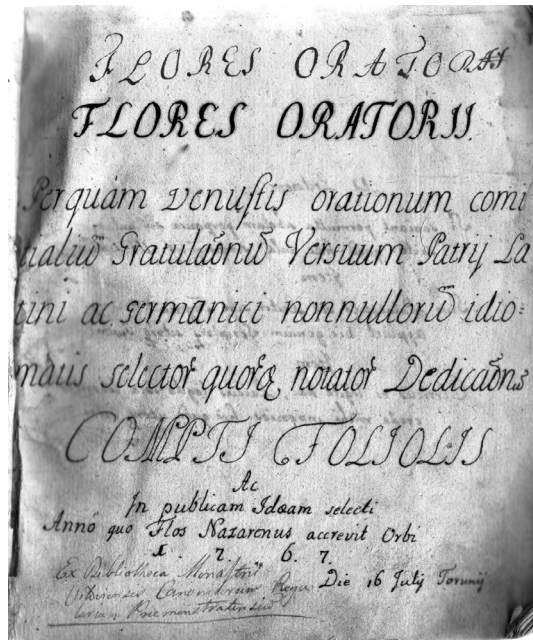 FLORES ORATORII
FLORES ORATORII.
Perquam venustis orationum comi
tialiũ Gratulaõnũ Versuum Patrij La
tini ac germanici nonnullorũ idio=
matis selector quorꝫ notator Dedicaõnũ
COMPTI FOLIOLIS
Ac
In publicam Idæam selecti
Anno quo Flos Nazarenus accrevit Orbi
1. 7. 6. 7.
Die 16 Julij Torunij
Ex Bibliotheca Monastrij
Canonicorum Regu
larium Præmonstratensiu